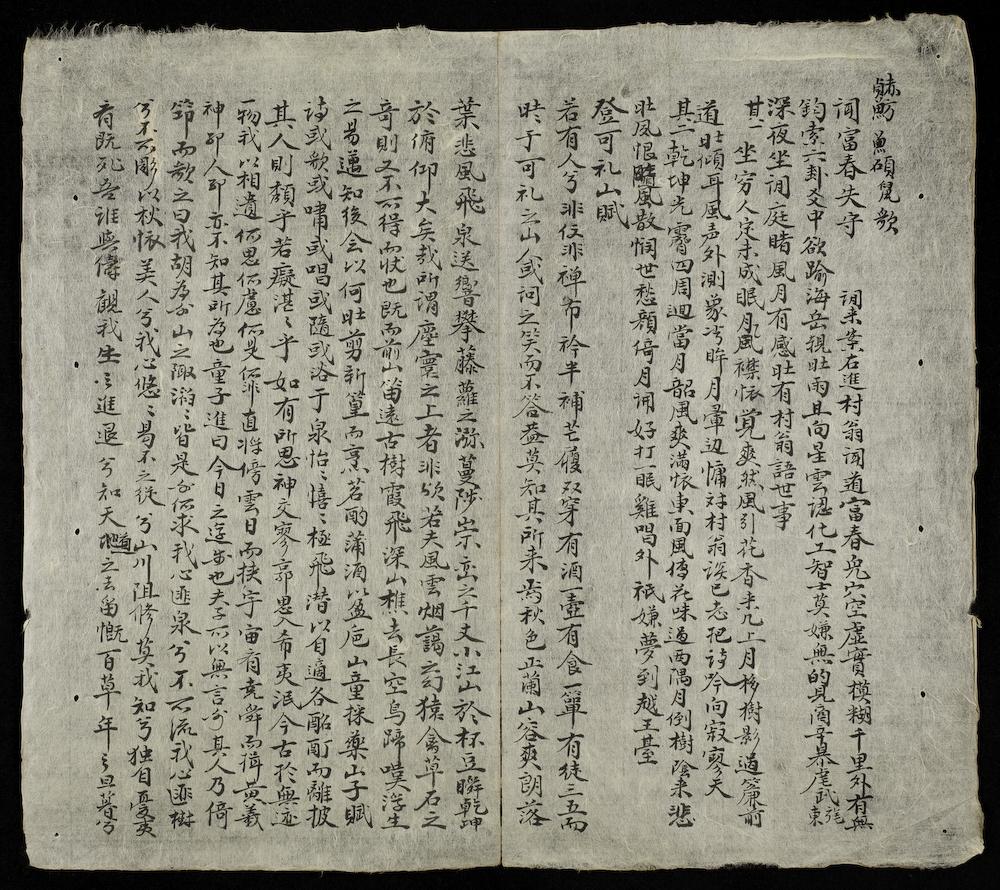 魴魚碩鼠歌
聞富春失守 詞来葉右進村翁聞道富春兎穴空虛實模糊千里外有無
鈞索六卦爻中欲踰海岳視壯雨且向星雲認化工智士莫嫌無的見商辛暴虐武
東
深夜坐詞庭睹風月有感壯有村翁語世事
其一 坐穷人定未成眠月風襟懷覺爽然風引花香来几上月移樹影過簾前
道壯傾耳風声外測象凭眸月暈边慵対村翁談已志把詩吟向寂寥天
其二 乾坤光霽四周迴當月韶風爽满懷東面風傳花味過西隅月倒樹陰来悲
壯風恨隨風散悯世愁顔倚月開好打一眠雞唱外祇嫌夢到越王臺
登可礼山賦
若有人兮非仗非禅布衿半補芒履双穿有酒一壺有食一箪有徒三五而
時于可礼之山或问之笑而不答盖莫知其所来焉秋色正蘭山容爽朗落
葉悲風飛泉送響攀藤蘿之溺蔓陟崇峦之千丈小江山於杯豆瞬乾坤
於俯仰大矣哉所謂塵寰之上者非欤若夫風雲烟藹之幻猿禽草石之
奇則又不可得而状也既而前山笛遠古樹霞飛深山樵去長空鸟蹄嘆浮生
之易邁知後会以何壯剪新篁而烹茗酌蒲酒以盈卮山童採藥山子賦
诗或歌或嘯或唱或隨或浴于泉怡〻禧〻極飛潜以自適各酩酊而離披
其人則頹乎若癡湛〻乎如有所思神交廖郭思入希夷泯今古於無迹
一物我以相遺何思何慮何是何非直將傍雲日而挟宇宙肴尭舜而揖黄羲
神耶人耶亦不知其所為也童子進曰今日之遊步也夫子可以無言分其人乃倚
筇而歌之曰我胡為分山之陬滔〻皆是分何求我心匪泉兮不可流我心匪樹
兮不可彫以秋懷美人兮我心悠〻曷不之從兮山川阻修莫我知兮独自憂
有既死吾誰與儔觀我生之進退兮知天地之去留慨百草年〻旦暮兮